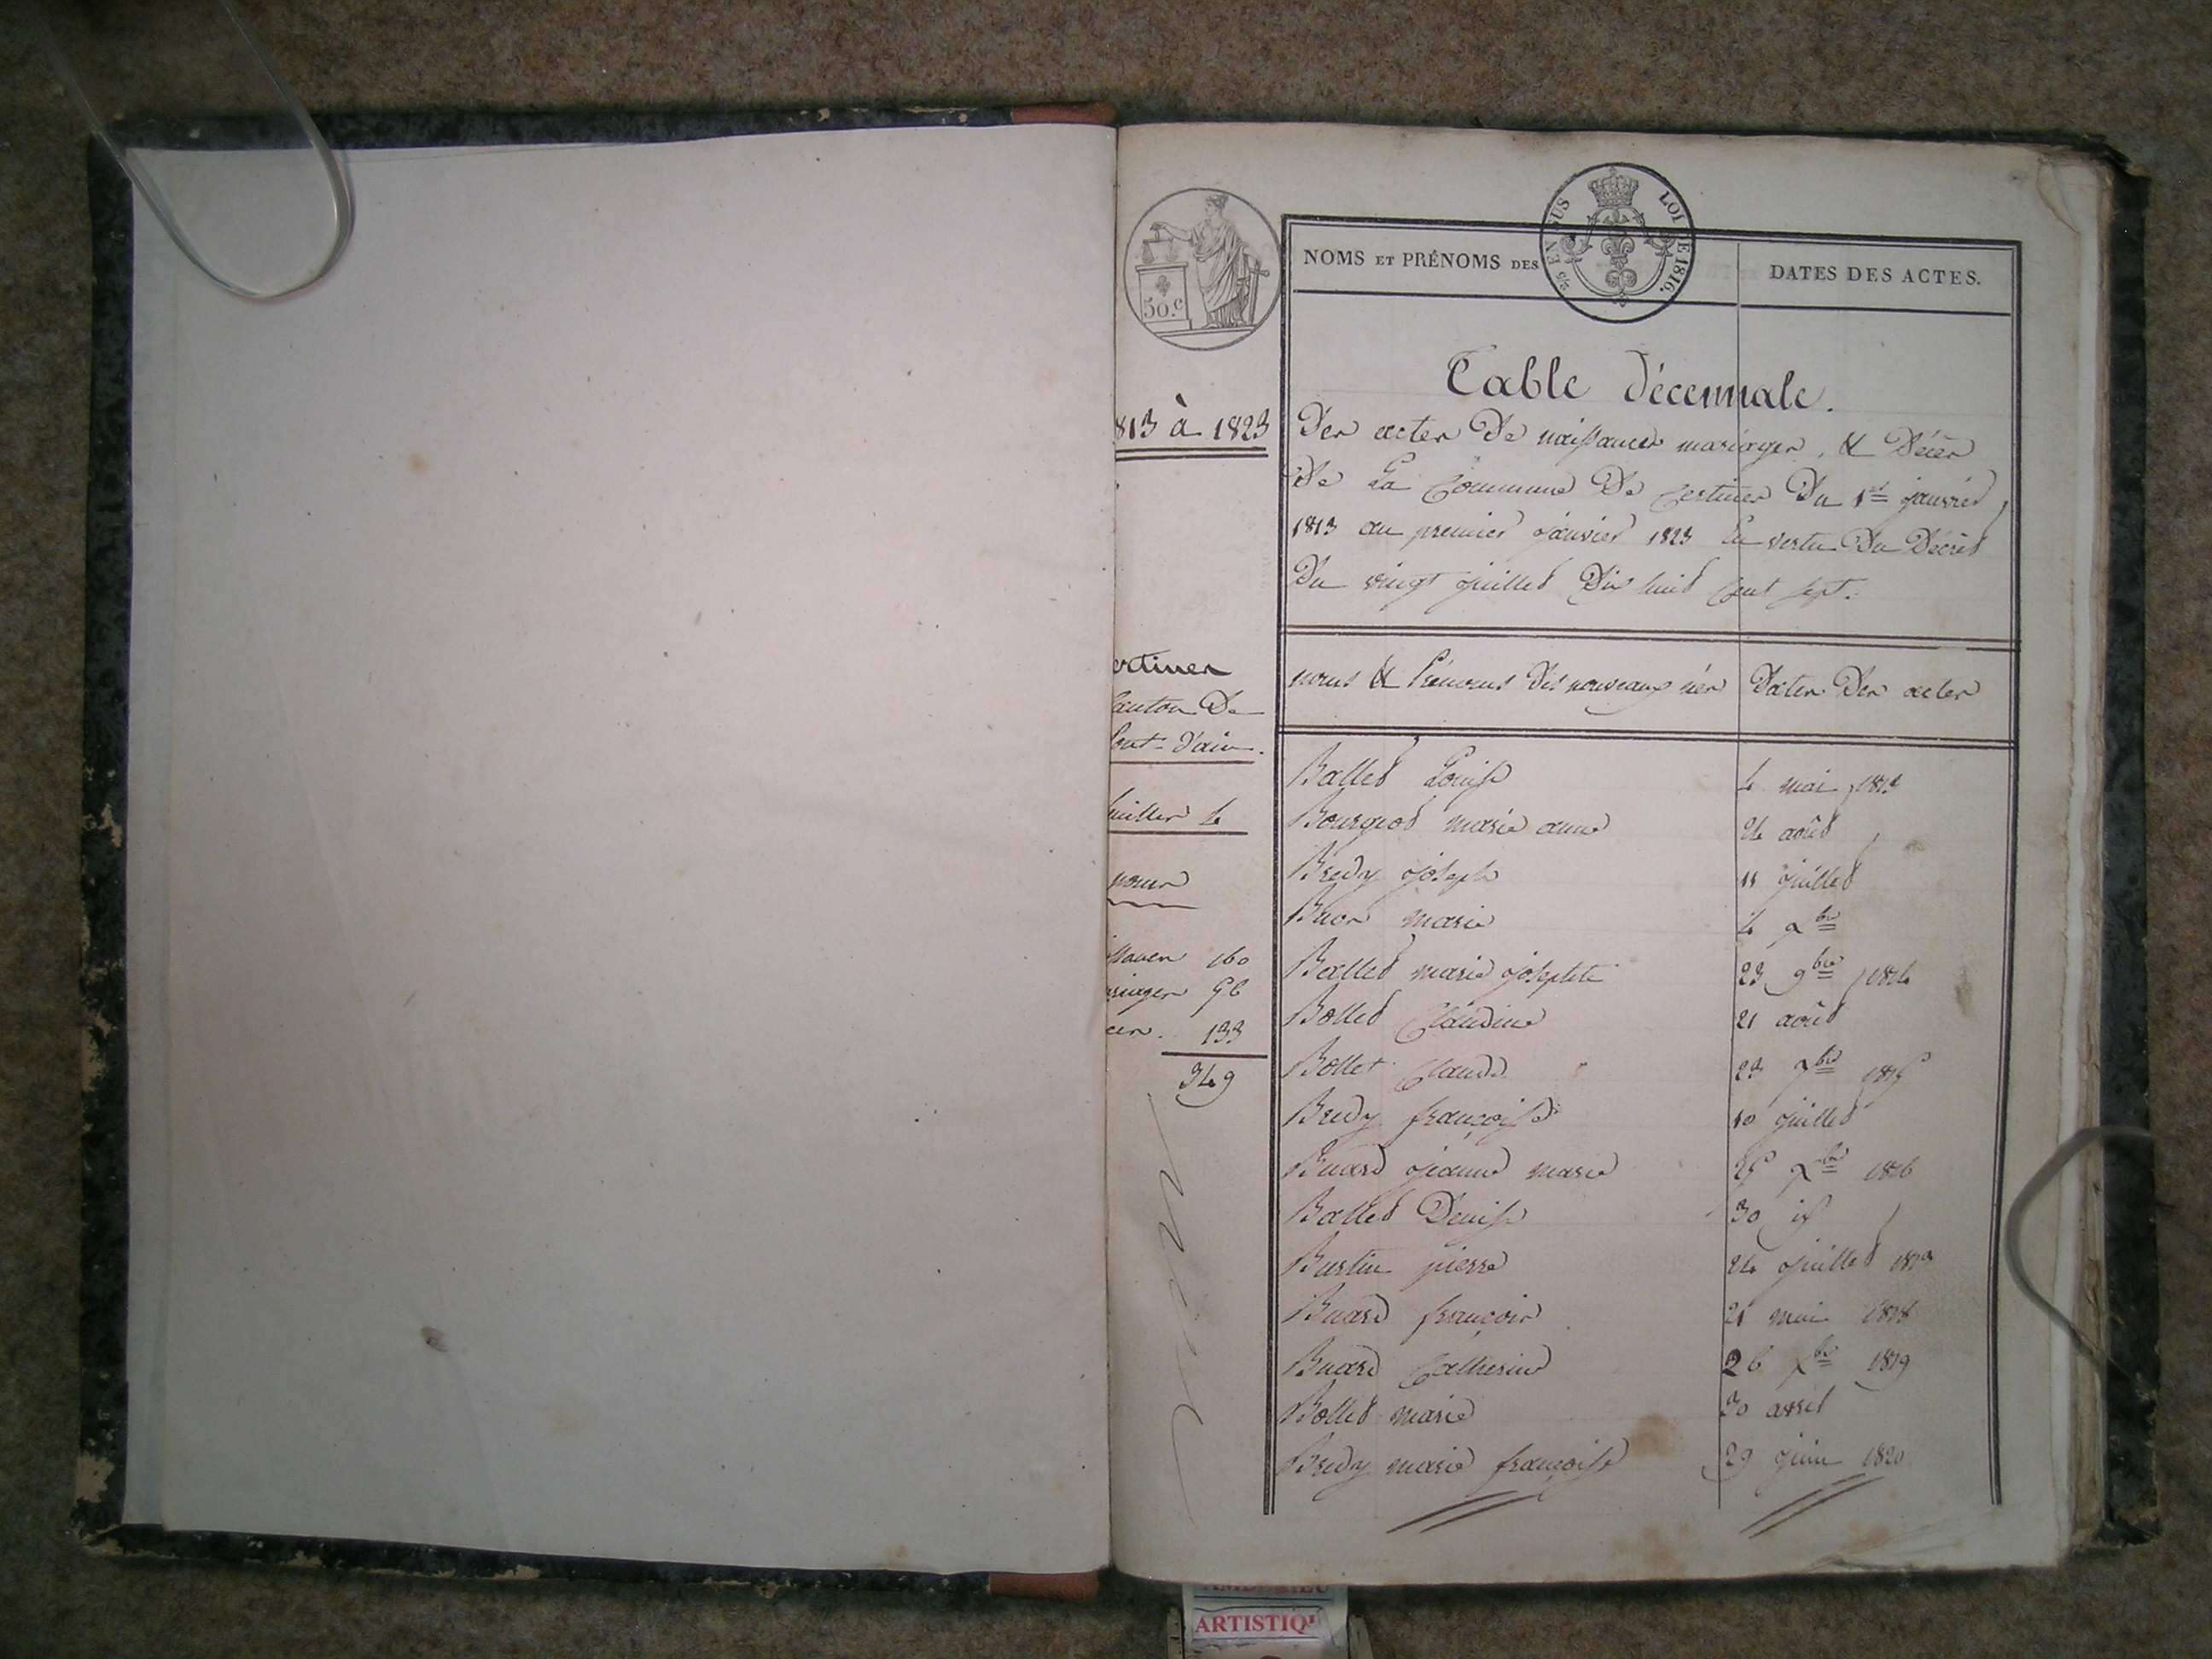 50.c
5/5 EN SUS
LOI DE 1816.
NOMS ET PRÉNOMS DES
DATES DES ACTES.
813 à 1823
Table décennale.
Des actes de naissances mariages, & Décès
de La Commune de Certines Du 1er janvier
1813 au premier janvier 1823 En vertu Du Décret
Du vingt juillet Dix huit Cent sept.
ertines
Canton De
Pont-d'ain.
feuillets 4
pour
160
56
133
349
noms & Prénoms des nouveaux nés
Dates Des actes
Ballet Louise
4 mai 1813
Bourgeot marie anne
24 août
Bredy joseph
11 juillet
Buor marie
4 xbre
Ballet marie josephte
23 9bre 1814
Bollet Claudine
21 août
Bollet Claude
23 7bre 1815
Bredy françoise
10 juillet
Buard jeanne marie
25 xbre 1816
Ballet Denise
30 id
Burtin pierre
24 juillet
Buard françois
21 mai 1818
Buard Catherine
26 xbre 1819
Bollet marie
30 avril
Bredy marie françoise
29 juin 1820
ARTISTIQ